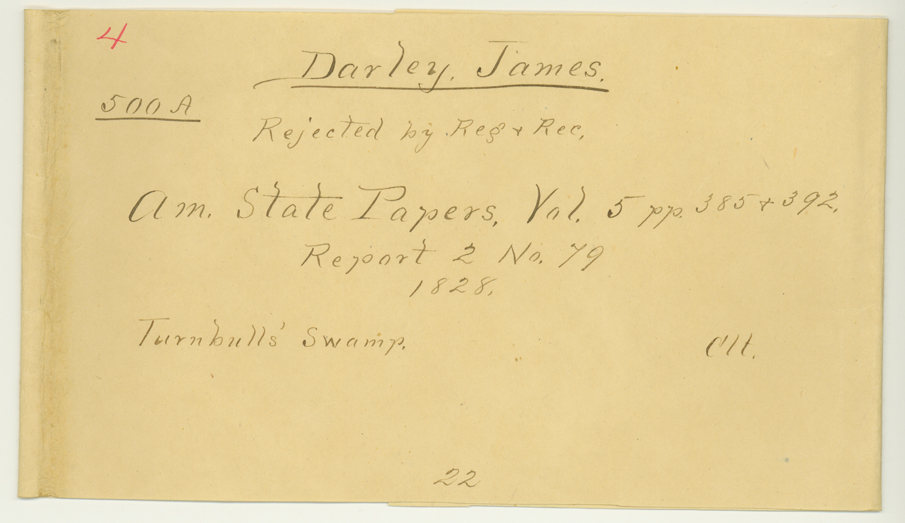 4
Darley, James.
500 A
Rejected by Reg & Rec.
Am. State Papers, Vol. 5 pp. 385 & 392.
Report 2 No. 79
1828.
Turnbulls' Swamp.
22